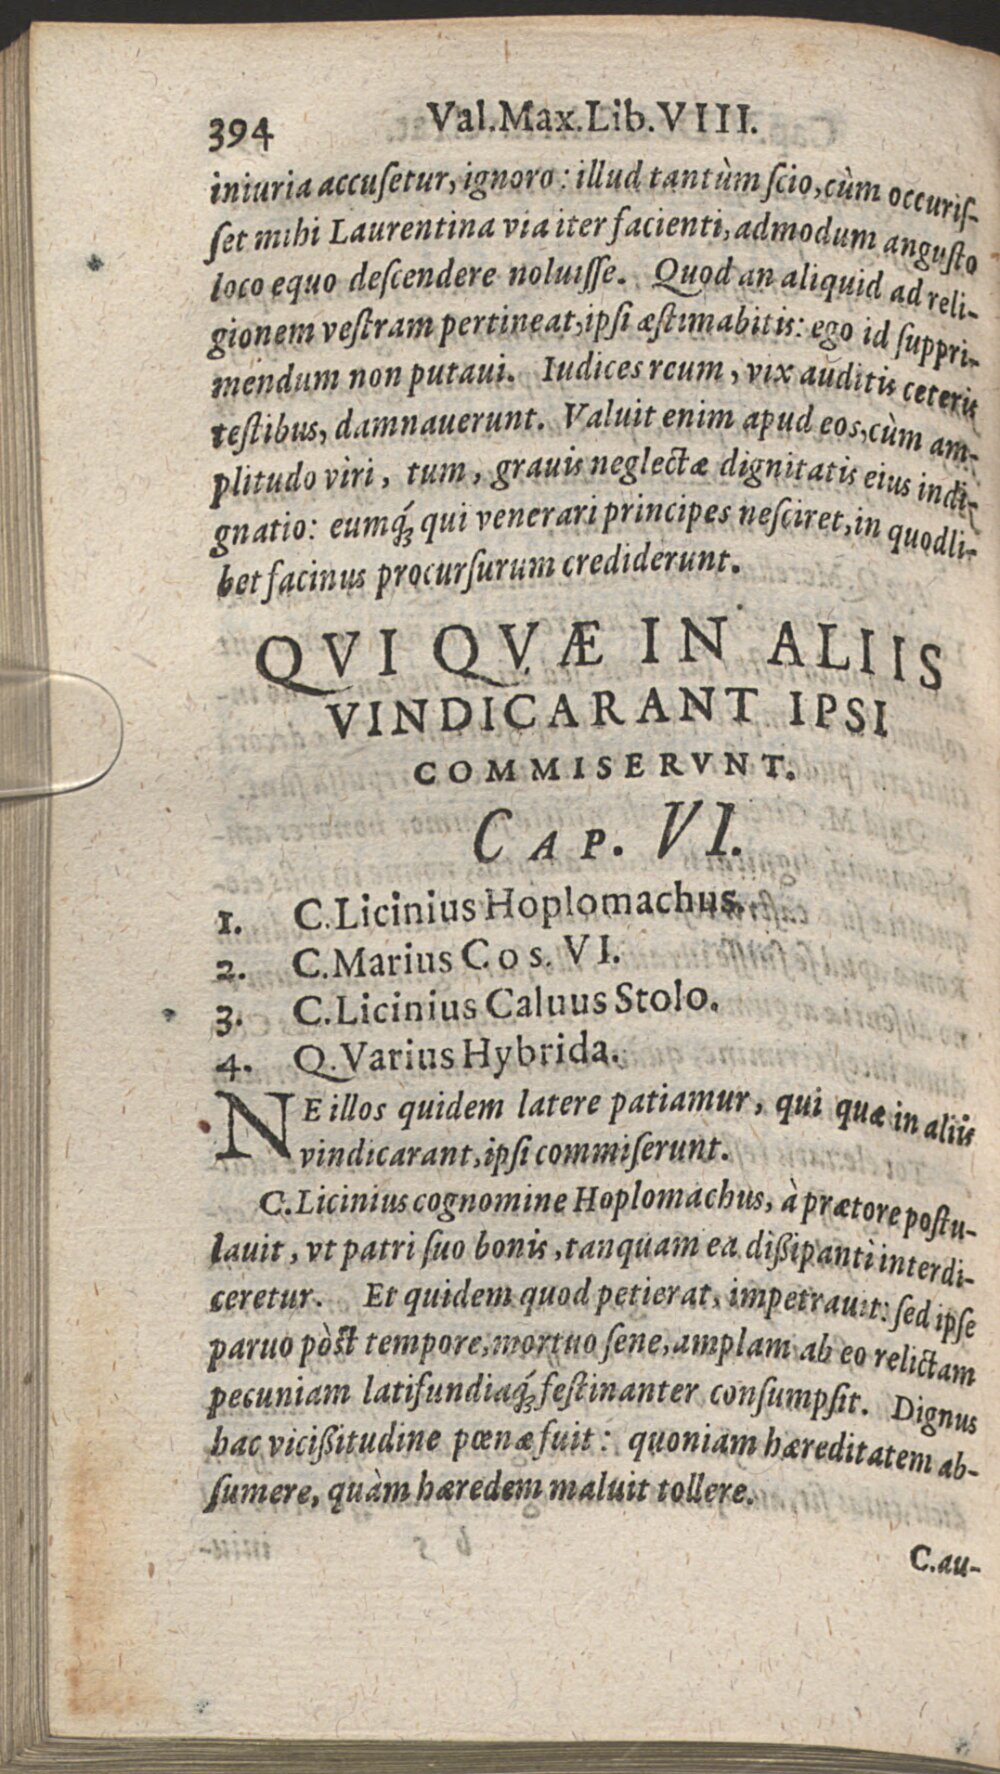 394 Val.Max.Lib.VIII.
iniuria accuſetur, ignoro: illud tantùm ſcio, cùm occuriſ-
ſet mihi Laurentina via iter facienti, admodum anguſto
loco equo deſcendere noluiſſe. Quod an aliquid ad reli-
gionem veſtram pertineat, ipſi æſtimabitis: ego id ſuppri-
mendum non putaui. Iudices reum, vix auditis ceteris
teſtibus, damnauerunt. Valuit enim apud eos, cùm am-
plitudo viri, tum, grauis neglectæ dignitatis eius indi-
gnatio: eumq́; qui venerari principes neſciret, in quodli-
bet facinus procurſurum crediderunt.
QVI QVÆ IN ALIIS
VINDICARANT IPSI
COMMISERVNT.
CAP. VI.
1. C.Licinius Hoplomachus.
2. C.Marius Cos. VI.
3. C.Licinius Caluus Stolo.
4. Q.Varius Hybrida.
NE illos quidem latere patiamur, qui quæ in aliis
vindicarant, ipſi commiſerunt.
C.Licinius cognomine Hoplomachus, à prætore poſtu-
lauit, vt patri ſuo bonis, tanquam ea dißipanti interdi-
ceretur. Et quidem quod petierat, impetrauit: ſed ipſe
paruo pòſt tempore, mortuo ſene, amplam ab eo relictam
pecuniam latifundiaq́; feſtinanter conſumpſit. Dignus
hac vicißitudine pœnæ fuit: quoniam hæreditatem ab-
ſumere, quàm hæredem maluit tollere.
C.au-